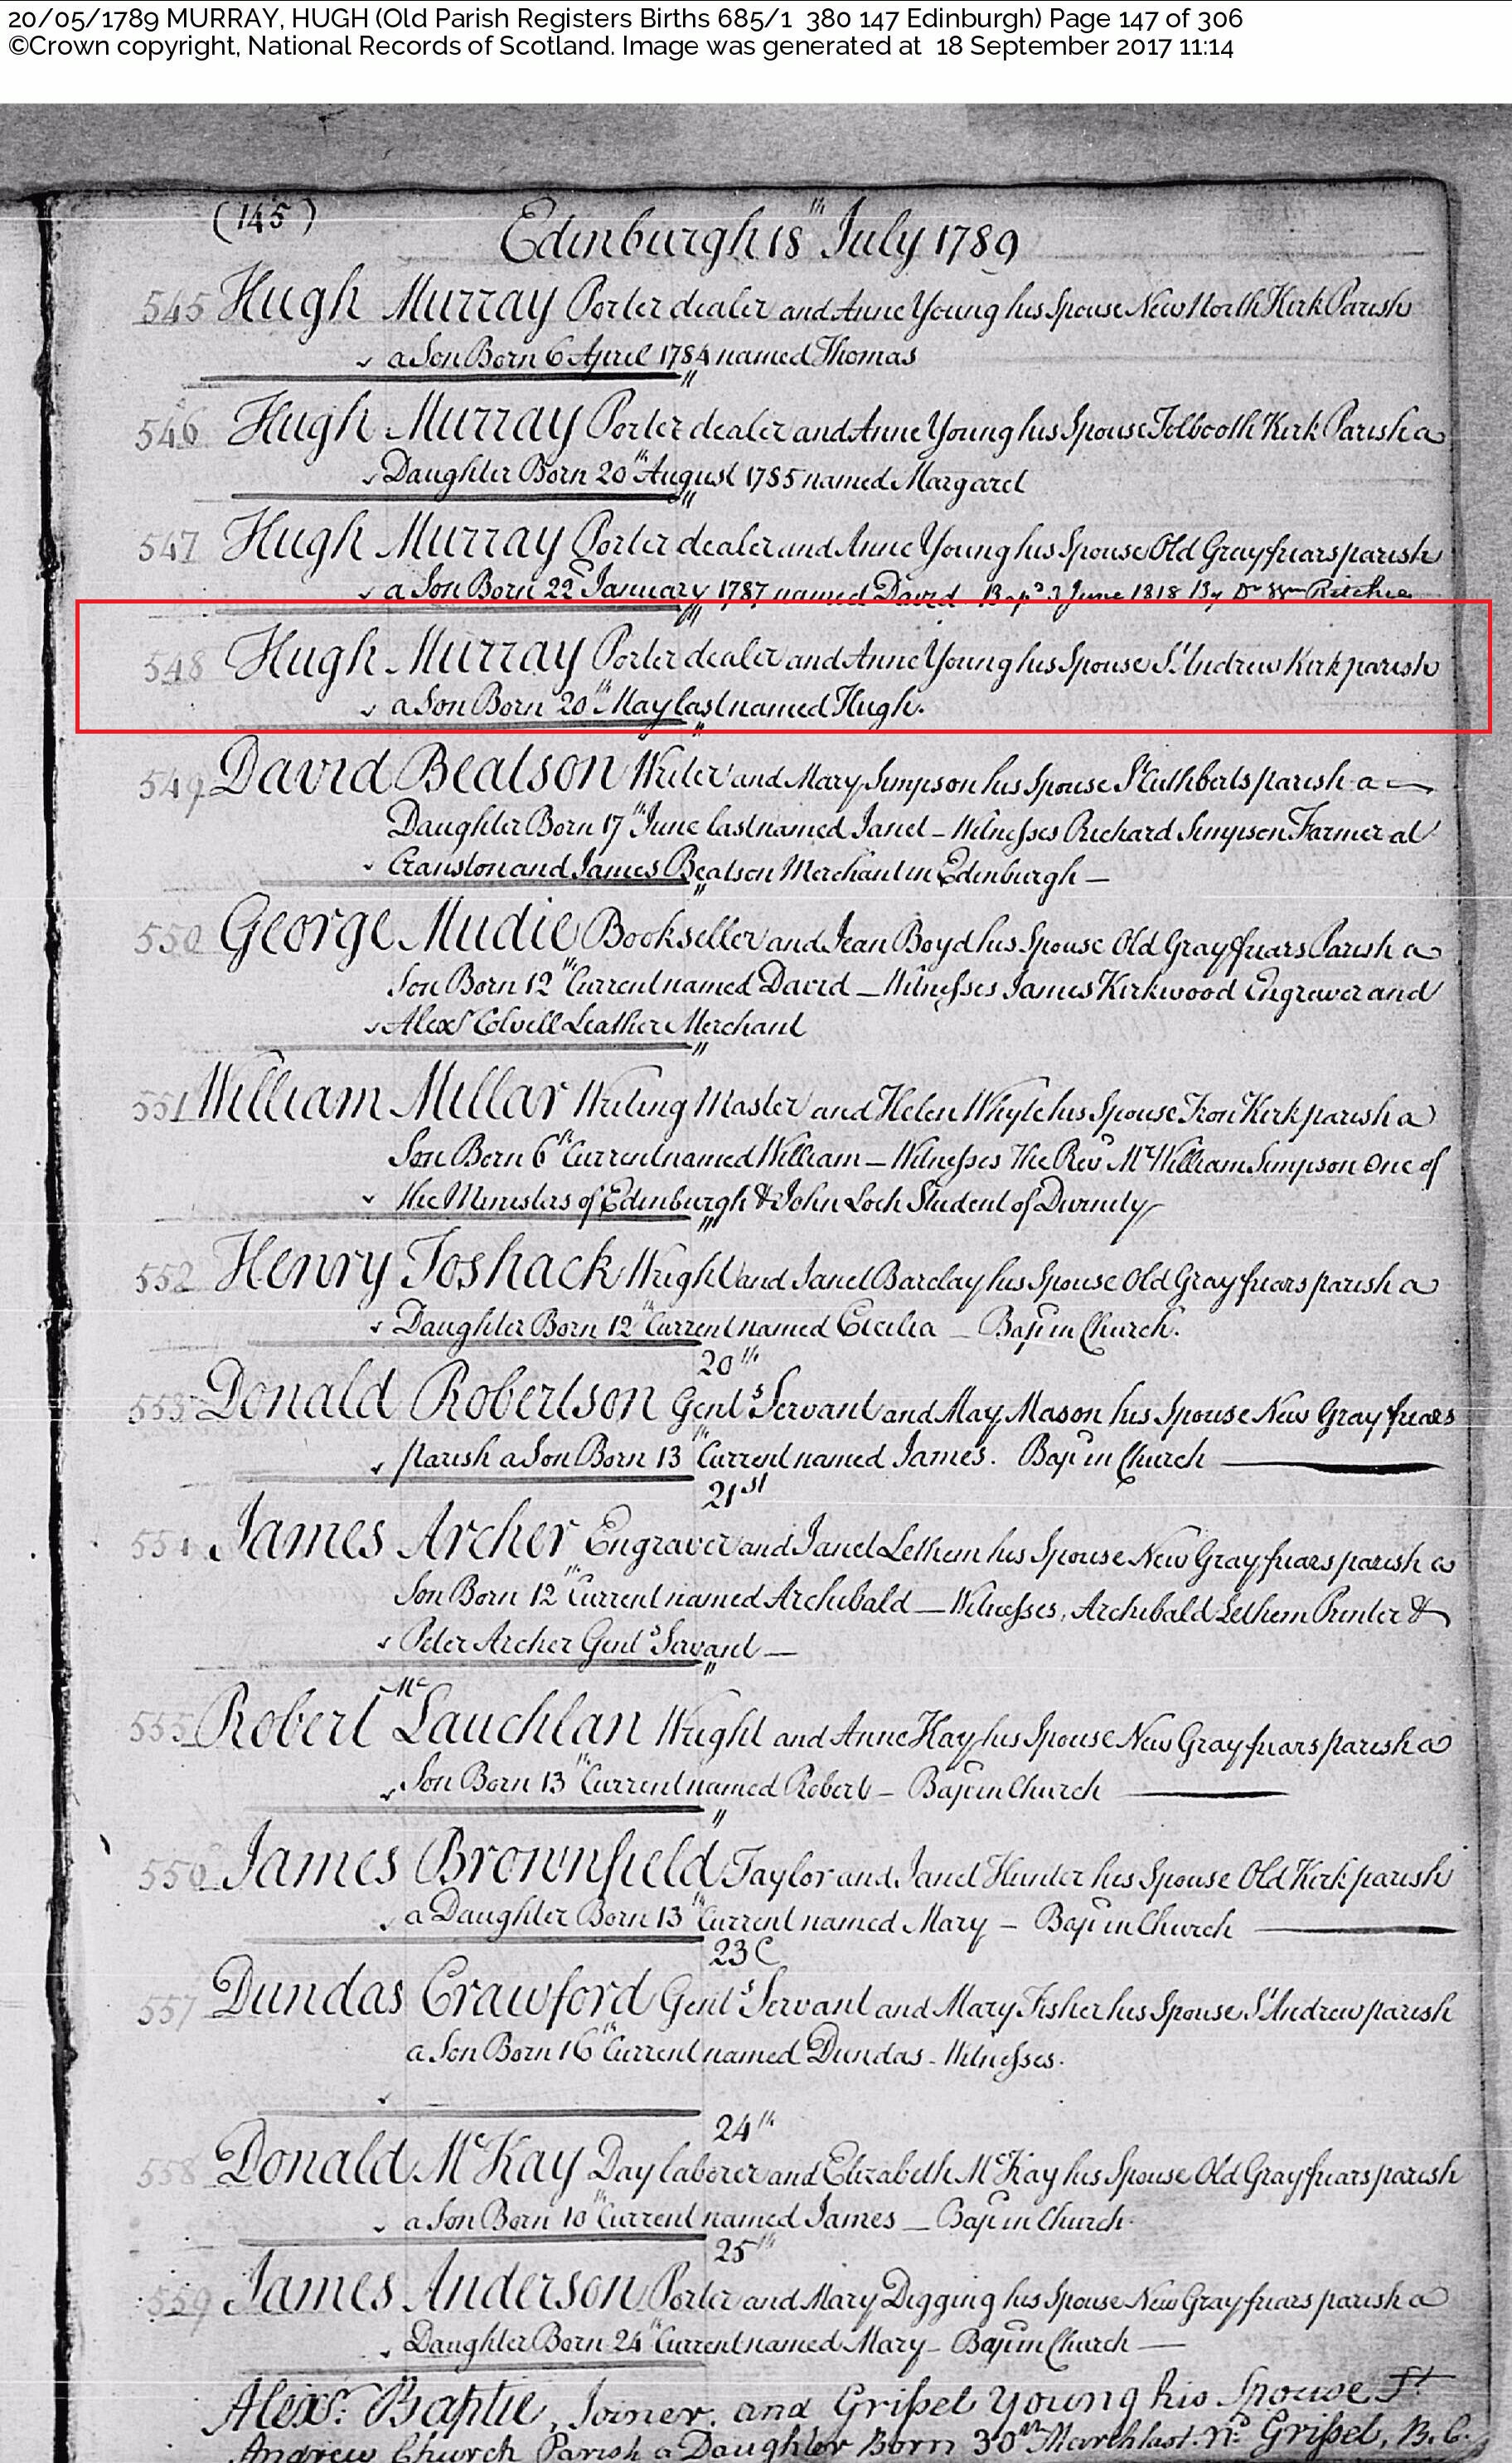 20/05/1789 MURRAY, HUGH (Old Parish Registers Births 685/1 380 147 Edinburgh) Page 147 of 306
©Crown copyright, National Records of Scotland. Image was generated at 18 September 2017 11:14
(145)
Edinburgh 18th July 1789
545 Hugh Murray Porter dealer and Anne Young his Spouse New North Kirk Parish
a Son Born 6 April 1784 named Thomas
"
546 Hugh Murray Porter dealer and Anne Young his Spouse Tolbooth Kirk Parish a
Daughter Born 20th August 1785 named Margaret
"
547 Hugh Murray Porter dealer and Anne Young his Spouse Old Grayfriars parish
a Son Born 22d January 1787 named David Bapd 3 June 1818 By Dr Wm Ritchie
"
548 Hugh Murray Porter dealer and Anne Young his Spouse St Andrew Kirk parish
a Son Born 20th May last named Hugh.
"
549 David Beatson Writer and Mary Simpson his Spouse St Cuthberts parish a
Daughter Born 17th June last named Janet – Witnesses Richard Simpson Farmer at
Cranston and James Beatson Merchant in Edinburgh –
"
550 George Mudie Bookseller and Jean Boyd his Spouse Old Grayfriars Parish a
Son Born 12th Current named David – Witnesses James Kirkwood Engraver and
Alexr Colvell Leather Merchant
"
551 William Millar Writing Master and Helen Whyte his Spouse Tron Kirk parish a
Son Born 6th Current named William – Witnesses The Revd Mr William Simpson One of
the Ministers of Edinburgh & John Loch Student of Divinity
"
552 Henry Toshack Wright and Janet Barclay his Spouse Old Grayfriars parish a
Daughter Born 12th Current named Cecilia – Bap: in Church.
20th
553 Donald Robertson Gents Servant and May Mason his Spouse New Grayfriars
parish a Son Born 13th Current named James. Bap: in Church
21st
554 James Archer Engraver and Janet Lethem his Spouse New Grayfriars parish a
Son Born 12th Current named Archibald – Witnesses, Archibald Lethem Printer &
Peter Archer Gents Servant –
"
555 Robert McLauchlan Wright and Anne Hay his Spouse New Grayfriars parish a
Son Born 13th Current named Robert – Bap: in Church
"
556 James Brownfield Taylor and Janet Hunter his Spouse Old Kirk parish
a Daughter Born 13th Current named Mary – Bap: in Church
23d
557 Dundas Crawford Gents Servant and Mary Fisher his Spouse St Andrew parish
a Son Born 16th Current named Dundas – Witnesses.
24th
558 Donald McKay Day laborer and Elizabeth McKay his Spouse Old Grayfriars parish
a Son Born 10th Current named James – Bap: in Church
25th
559 James Anderson Porter and Mary Digging his Spouse New Grayfriars parish a
Daughter Born 24th Current named Mary – Bap: in Church –
Alexr: Baptie, Joiner, and Grißel Young his Spouse St
Andrew Church Parish a Daughter Born 30th March last. nd Grißel, B. C.